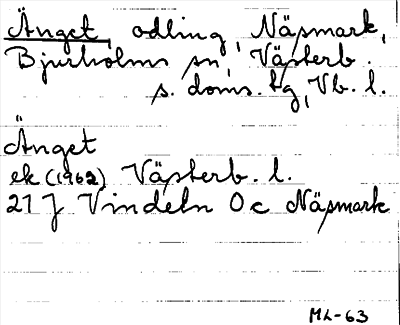 Änget, odling, Näsmark,
Bjurholms sn, Västerb.
s. doms. hg, Vb. l.
Änget
ek (1962) Västerb. l.
21 J Vindeln Oc Näsmark
ML-63